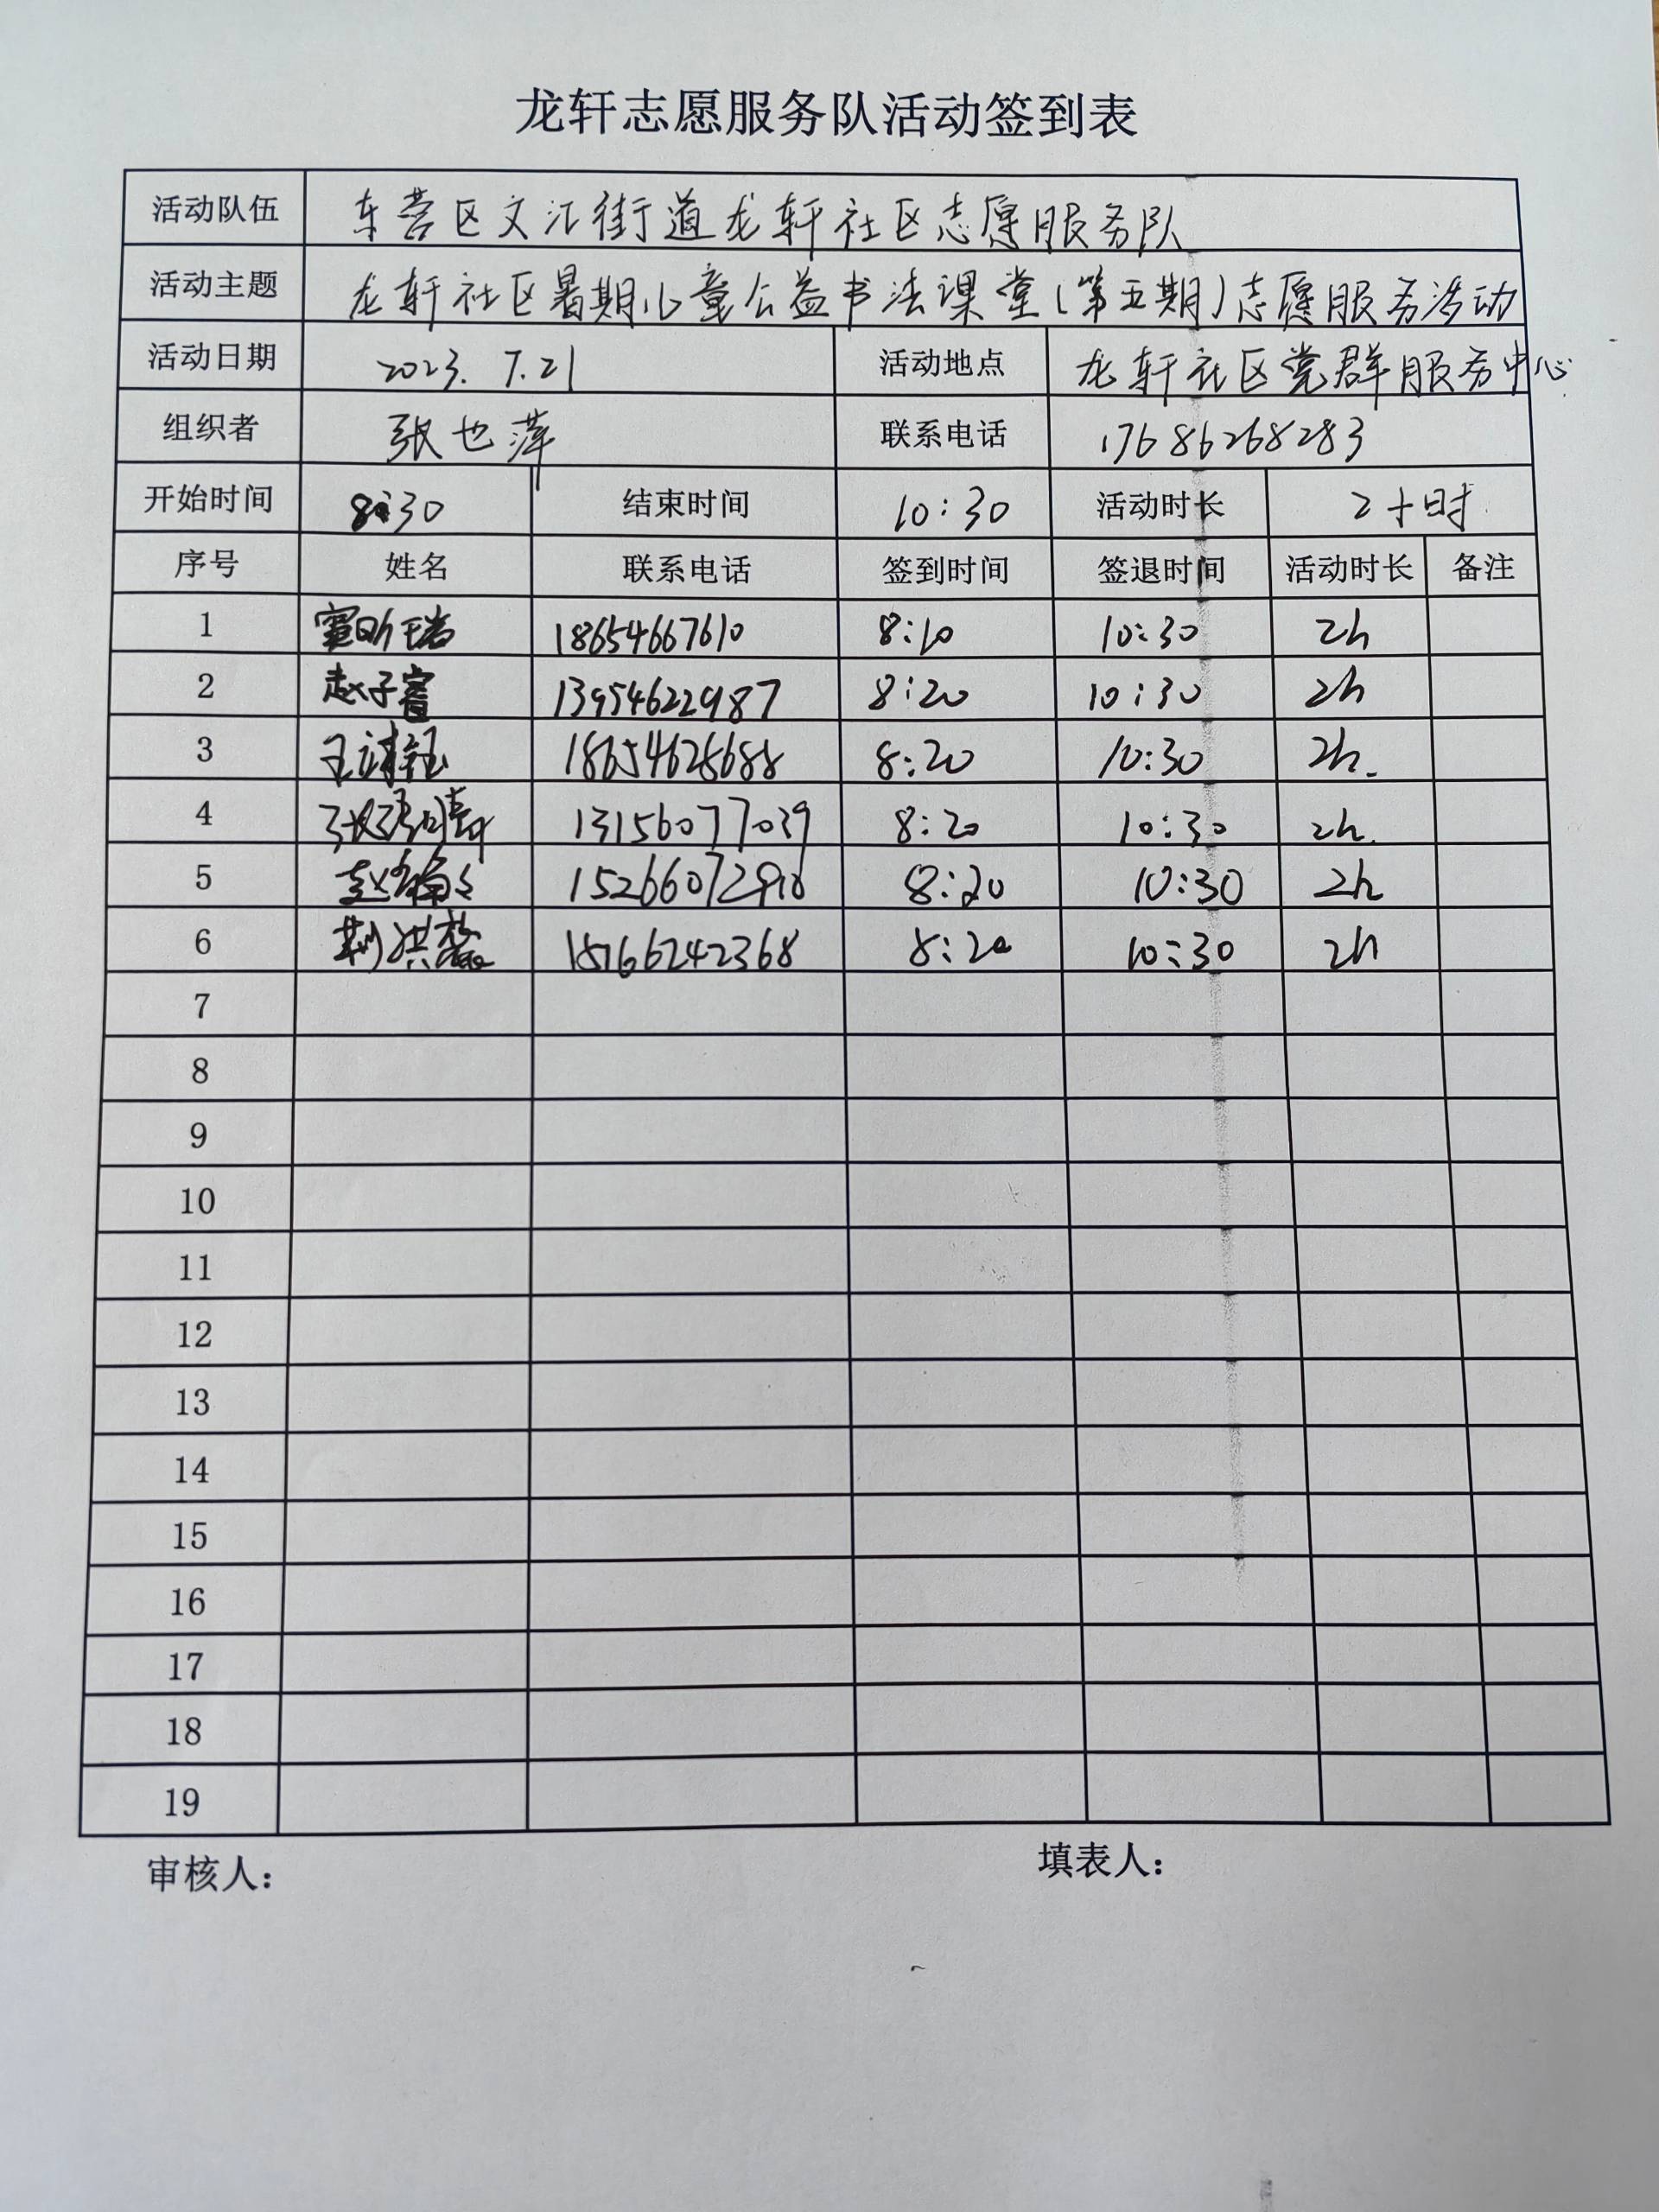 龙轩志愿服务队活动签到表
活动队伍 东营区文汇街道龙轩社区志愿服务队
活动主题 龙轩社区暑期儿童公益书法课堂(第五期)志愿服务活动
活动日期 2023.7.21 活动地点 龙轩社区党群服务中心
组织者 张也萍 联系电话 17686268283
开始时间 8:30 结束时间 10:30 活动时长 2小时
序号 姓名 联系电话 签到时间 签退时间 活动时长 备注
1 窦昕瑞 18654667610 8:10 10:30 2h
2 赵子睿 13954622987 8:20 10:30 2h
3 18654625688 8:20 10:30 2h.
4 13156077039 8:20 10:30 2h.
5 8:20 10:30 2h
6 荆洪 8:20 10:30 2h
7
8
9
10
11
12
13
14
15
16
17
18
19
审核人： 填表人：